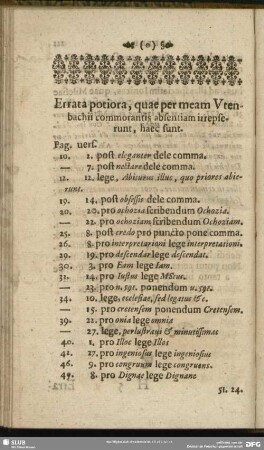 (o)
Errata potiora, quae per meam Vten-
bachii commorantis absentiam irrepse-
runt, haec sunt.
Pag. vers.
10. 1. post eleganter dele comma.
— 7. post nectare dele comma.
12. 12. lege, Abiturus illuc, quo priores abie-
runt.
19. 14. post obsessis dele comma.
20. 20. pro ochozea scribendum Ochozia.
— 22. pro ochoziam scribendum Ochoziam.
25. 8. post credo pro puncto pone comma.
26. 8. pro interpretarioni lege interpretationi.
29. 19. pro descendar lege descendat.
30. 3. pro Eam lege Iam.
31. 14. pro Iustus lege MStus.
— 23. pro n. 591. ponendum n. 591.
34. 10. lege, ecclesiae, sed legatus &c.
— 15. pro cretensem ponendum Cretensem.
39. 22. pro onia lege omnia
— 27. lege, perlustrani & minutissimae
40. 1. pro Illoc lege Illos
42. 27. pro ingeniosus lege ingeniosius
46. 9. pro congruum lege congruens.
47. 8. pro Dignae lege Dignane
51. 24.
SLUB